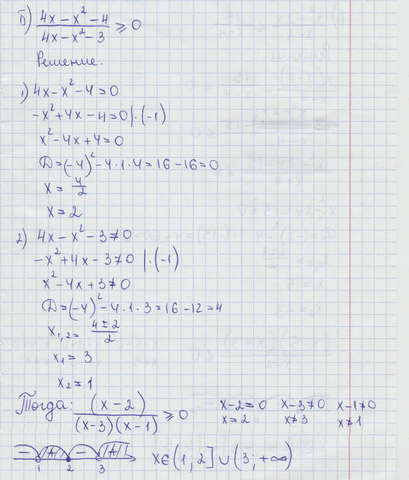 б) (4x - x² - 4)/(4x - x² - 3) ⩾ 0
Решение.
1) 4x - x² - 4 = 0
-x² + 4x - 4 = 0 |·(-1)
x² - 4x + 4 = 0
D = (-4)² - 4·1·4 = 16 - 16 = 0
x = 4/2
x = 2
2) 4x - x² - 3 ≠ 0
-x² + 4x - 3 ≠ 0 |·(-1)
x² - 4x + 3 ≠ 0
D = (-4)² - 4·1·3 = 16 - 12 = 4
x₁,₂ = (4 ± 2)/2
x₁ = 3
x₂ = 1
Тогда: (x - 2)/((x - 3)(x - 1)) ⩾ 0
x - 2 = 0 x - 3 ≠ 0 x - 1 ≠ 0
x = 2 x ≠ 3 x ≠ 1
- + - +
1 2 3 x ∈ (1, 2] ∪ (3; +∞)